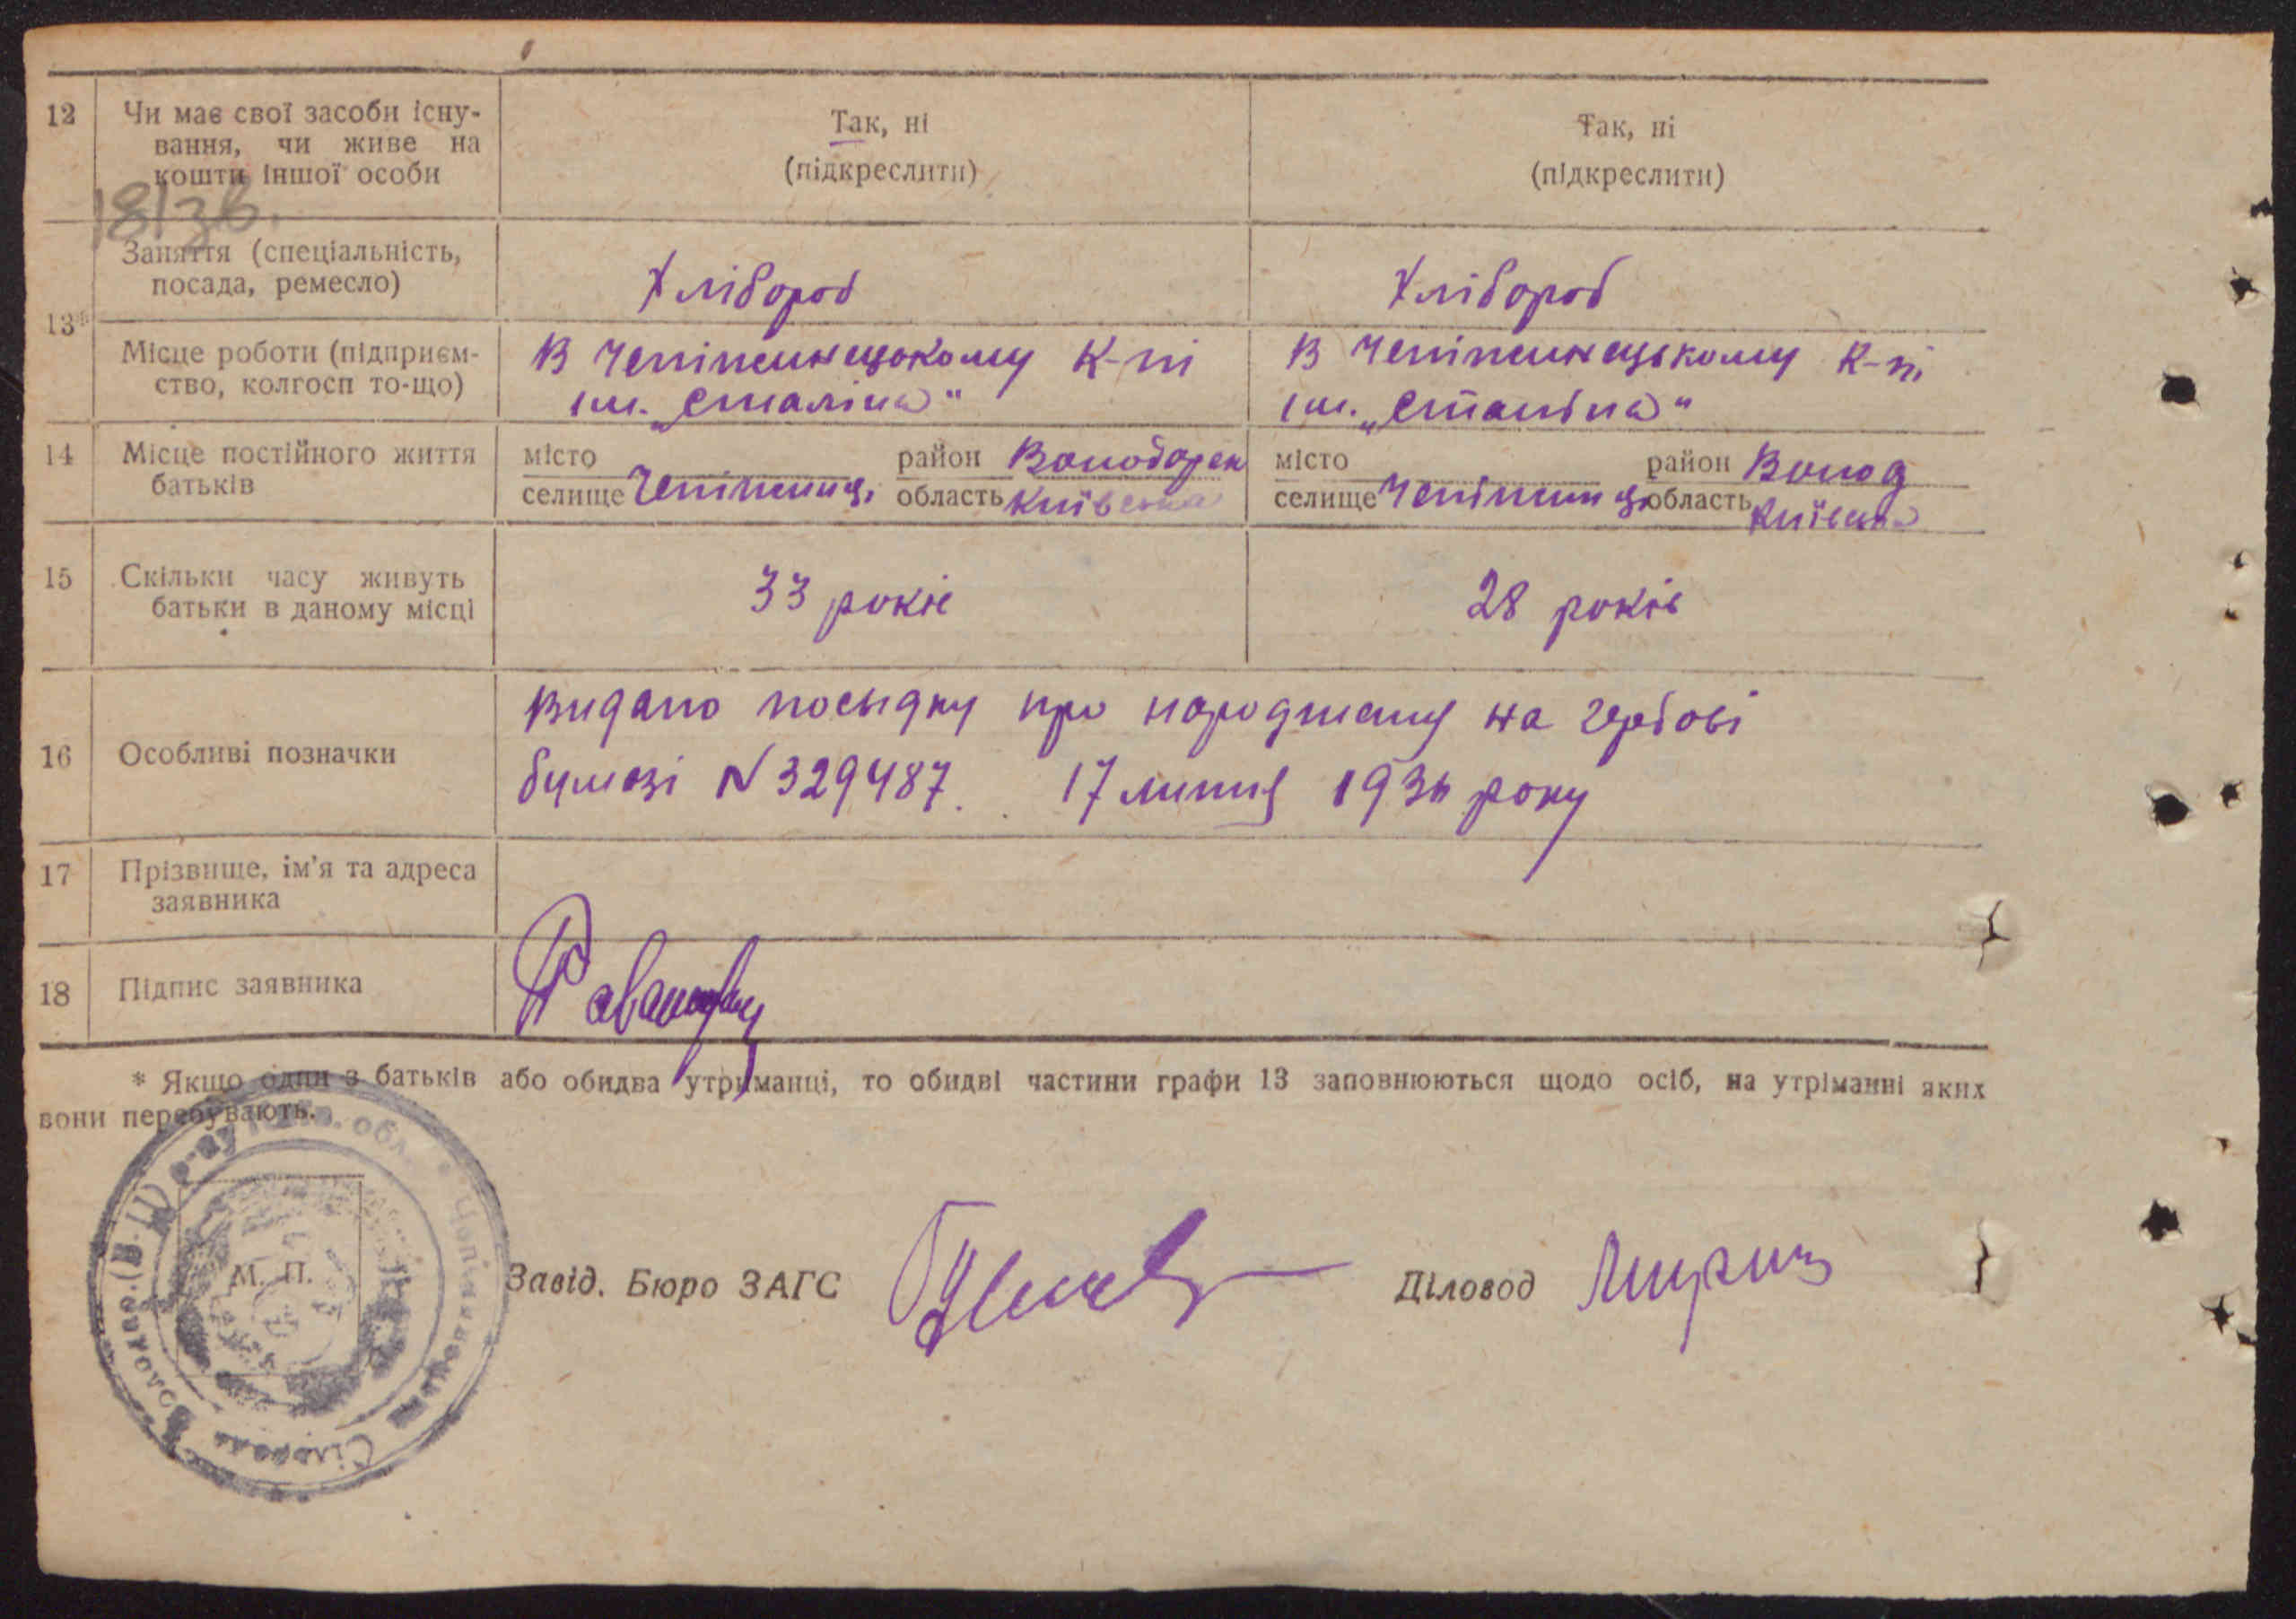 12 Чи має свої засоби існу-
вання, чи живе на
кошти іншої особи
Так, ні
(підкреслити)
Так, ні
(підкреслити)
18/зв.
13*
Заняття (спеціальність,
посада, ремесло)
Хлібороб
Хлібороб
Місце роботи (підприєм-
ство, колгосп то-що)
В Чепіженецькому к-пі
ім. „Сталіна"
В Чепіженецькому к-пі
ім. „Сталіна"
14 Місце постійного життя
батьків
місто
селище Чепіжинці
район Володарськ
область Київська
місто
селище Чепіжинці
район Волод
область Київська
15 Скільки часу живуть
батьки в даному місці
33 років
28 років
16 Особливі позначки
Видано посвідку про народження на гербові
бумазі N 329487. 17 липня 1936 року
17 Прізвище, ім'я та адреса
заявника
18 Підпис заявника
* Якщо один з батьків або обидва утриманці, то обидві частини графи 13 заповнюються щодо осіб, на утріманні яких
вони перебувають.
М. П.
Завід. Бюро ЗАГС
Діловод
Сільрада